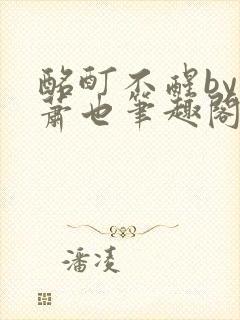 酩酊不醒by
萧也筆趣閣
潘凌